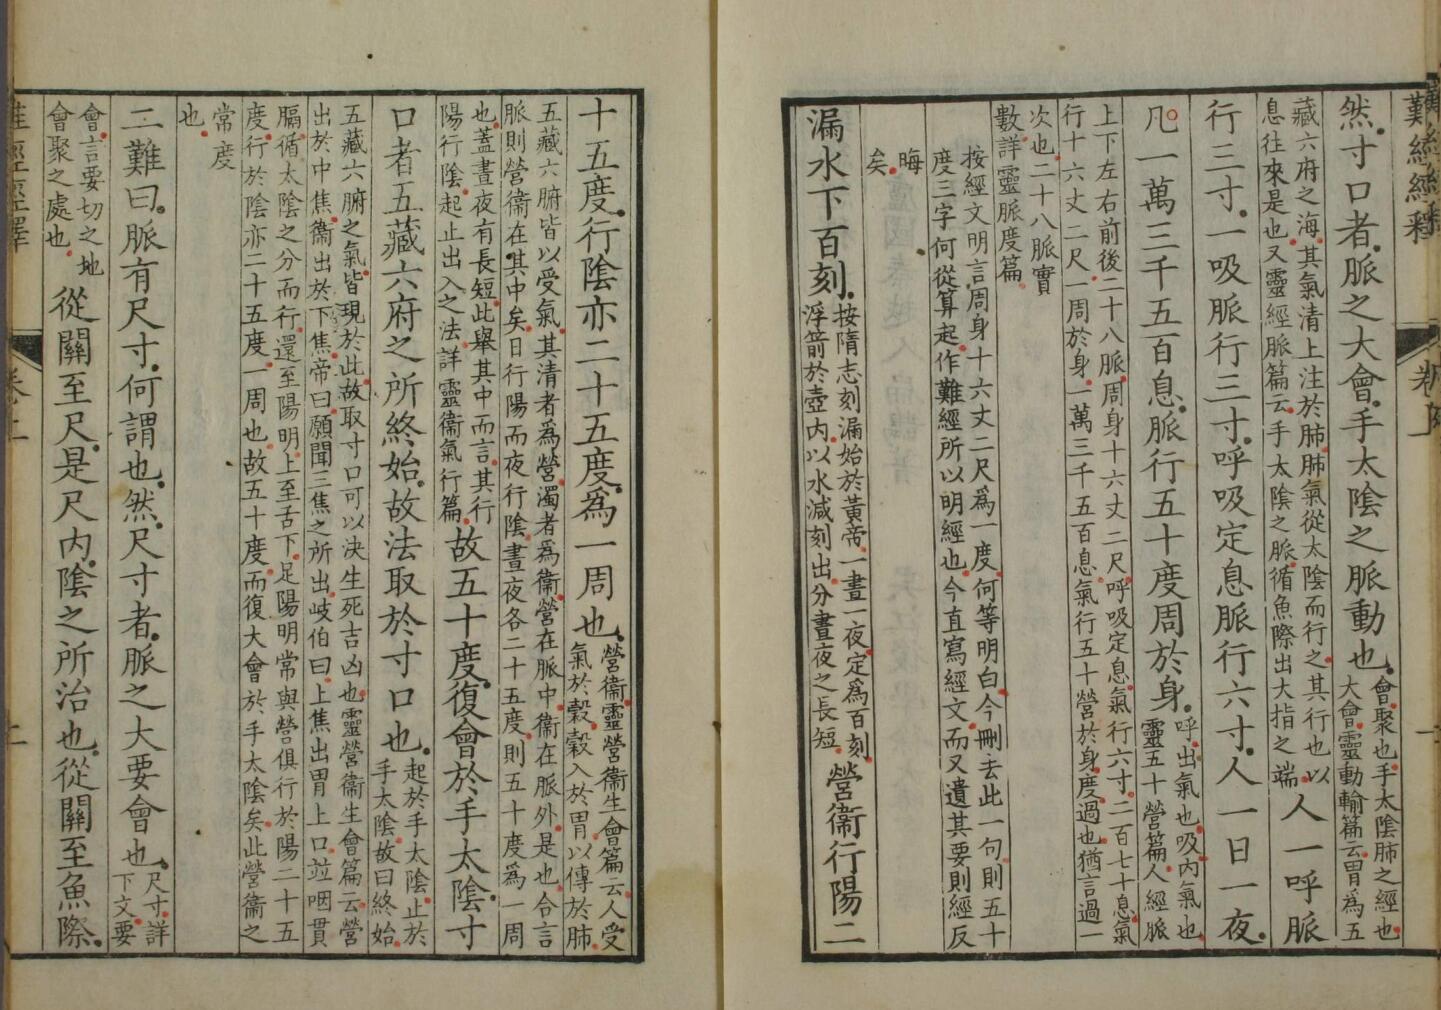 難經經釋
卷上
然寸口者脈之大會手太陰之脈動也會聚也手太陰肺之經也
大會靈動輸篇云胃爲五
藏六府之海其氣清上注於肺肺氣從太陰而行之其行也以
息往來是也又靈經脈篇云手太陰之脈循魚際出大指之端人一呼脈
行三寸一吸脈行三寸呼吸定息脈行六寸人一日一夜
凡一萬三千五百息脈行五十度周於身呼出氣也吸內氣也
靈五十營篇人經脈
上下左右前後二十八脈周身十六丈二尺呼吸定息氣行六寸二百七十息氣
行十六丈二尺一周於身一萬三千五百息氣行五十營於身度過也猶言過一
次也二十八脈實
數詳靈脈度篇
按經文明言周身十六丈二尺爲一度何等明白今刪去此一句則五十
度三字何從算起作難經所以明經也今直寫經文而又遺其要則經反
晦
矣
漏水下百刻按隋志刻漏始於黃帝一晝一夜定爲百刻
浮箭於壺內以水減刻出分晝夜之長短營衞行陽二
十五度行陰亦二十五度爲一周也營衞靈營衞生會篇云人受
氣於穀穀入於胃以傳於肺
五藏六腑皆以受氣其清者爲營濁者爲衞營在脈中衞在脈外是也合言
脈則營衞在其中矣日行陽而夜行陰晝夜各二十五度則五十度爲一周
也蓋晝夜有長短此舉其中而言其行
陽行陰起止出入之法詳靈衞氣行篇故五十度復會於手太陰寸
口者五藏六府之所終始故法取於寸口也起於手太陰止於
手太陰故曰終始
五藏六腑之氣皆現於此故取寸口可以決生死吉凶也靈營衞生會篇云營
出於中焦衞出於下焦帝曰願聞三焦之所出岐伯曰上焦出胃上口並咽貫
膈循太陰之分而行還至陽明上至舌下足陽明常與營俱行於陽二十五
度行於陰亦二十五度一周也故五十度而復大會於手太陰矣此營衞之
常度
也
二難曰脈有尺寸何謂也然尺寸者脈之大要會也尺寸詳
下文要
會言要切之地
會聚之處也從關至尺是尺內陰之所治也從關至魚際
難經經釋
卷上